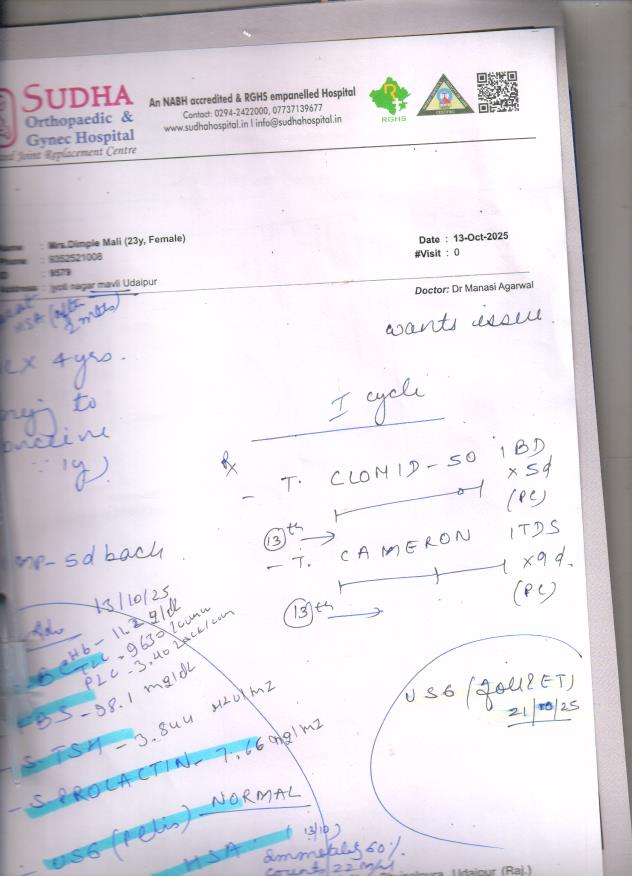 SUDHA
Orthopaedic &
Gynec Hospital
Joint Replacement Centre
An NABH accredited & RGHS empanelled Hospital
Contact: 0294-2422000, 07737139677
www.sudhahospital.in I info@sudhahospital.in
RGHS
Name : Mrs.Dimple Mali (23y, Female)
: 9352521008
ID : 9579
Address : jyoti nagar mavli Udaipur
Date : 13-Oct-2025
#Visit : 0
Doctor: Dr Manasi Agarwal
HSA (after
wants issue
4 yrs.
to
I cycle
Rx
- T. CLOMID-50 1 BD
x 5d
(PC)
13th →
- T. CAMERON 1 TDS
x 9 d.
(PC)
13th →
- 5d back
13/10/25
Hb - 11.2 g/dl
TLC - 9630
PLC - 3.40 lack/
FBS - 98.1 mg/dl
- S. TSH - 3.844
- S. PROLACTIN - 7.66
- USG (Pelvis) - NORMAL
HSA (13/10)
60%.
22
USG (foll & ET)
21/10/25
Udaipur (Raj.)